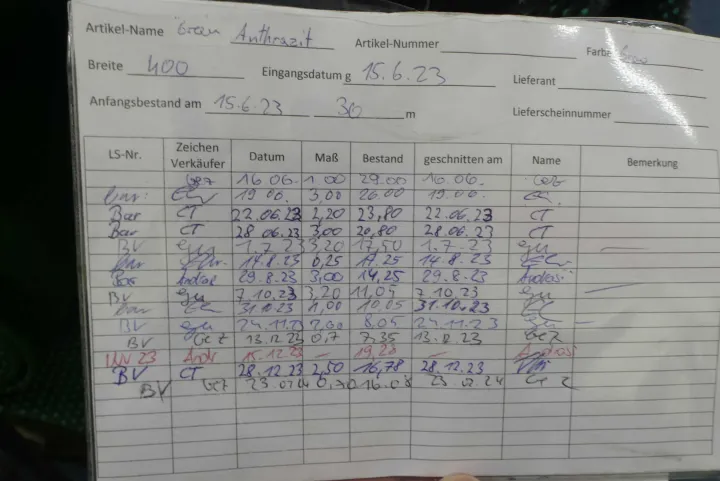 Artikel-Name Green Anthrazit Artikel-Nummer Farbe
Breite 400 Eingangsdatum g 15.6.23 Lieferant
Anfangsbestand am 15.6.23 30 m Lieferscheinnummer
LS-Nr. Zeichen Verkäufer Datum Maß Bestand geschnitten am Name Bemerkung
Gez 16 06. 1.00 29.00 16 06. Gez
19 06. 3,00 26.00 19.06.
Bar CT 22.06.23 2,20 23,80 22.06.23 CT
Bar CT 28 06.23 3,00 20,80 28.06.23 CT
BV 1.7.23 3,20 17,50 1.7.23
14.8.23 0,25 17,25 14.8.23
Bar 29.8.23 3,00 14,25 29.8.23
BV 7.10.23 3,20 11,05 7.10.23
Bar 31.10.23 1,00 10,05 31.10.23
BV 24.11.23 2,00 8.05 24.11.23
BV Gez 13.12.23 0,7 7.35 13.12.23 Gez
INV 23 Andr 15.12.23 – 19,28 –
BV CT 28.12.23 2,50 16,78 28.12.23
BV Gez 23.02.24 0,70 16.08 23.02.24 Gez